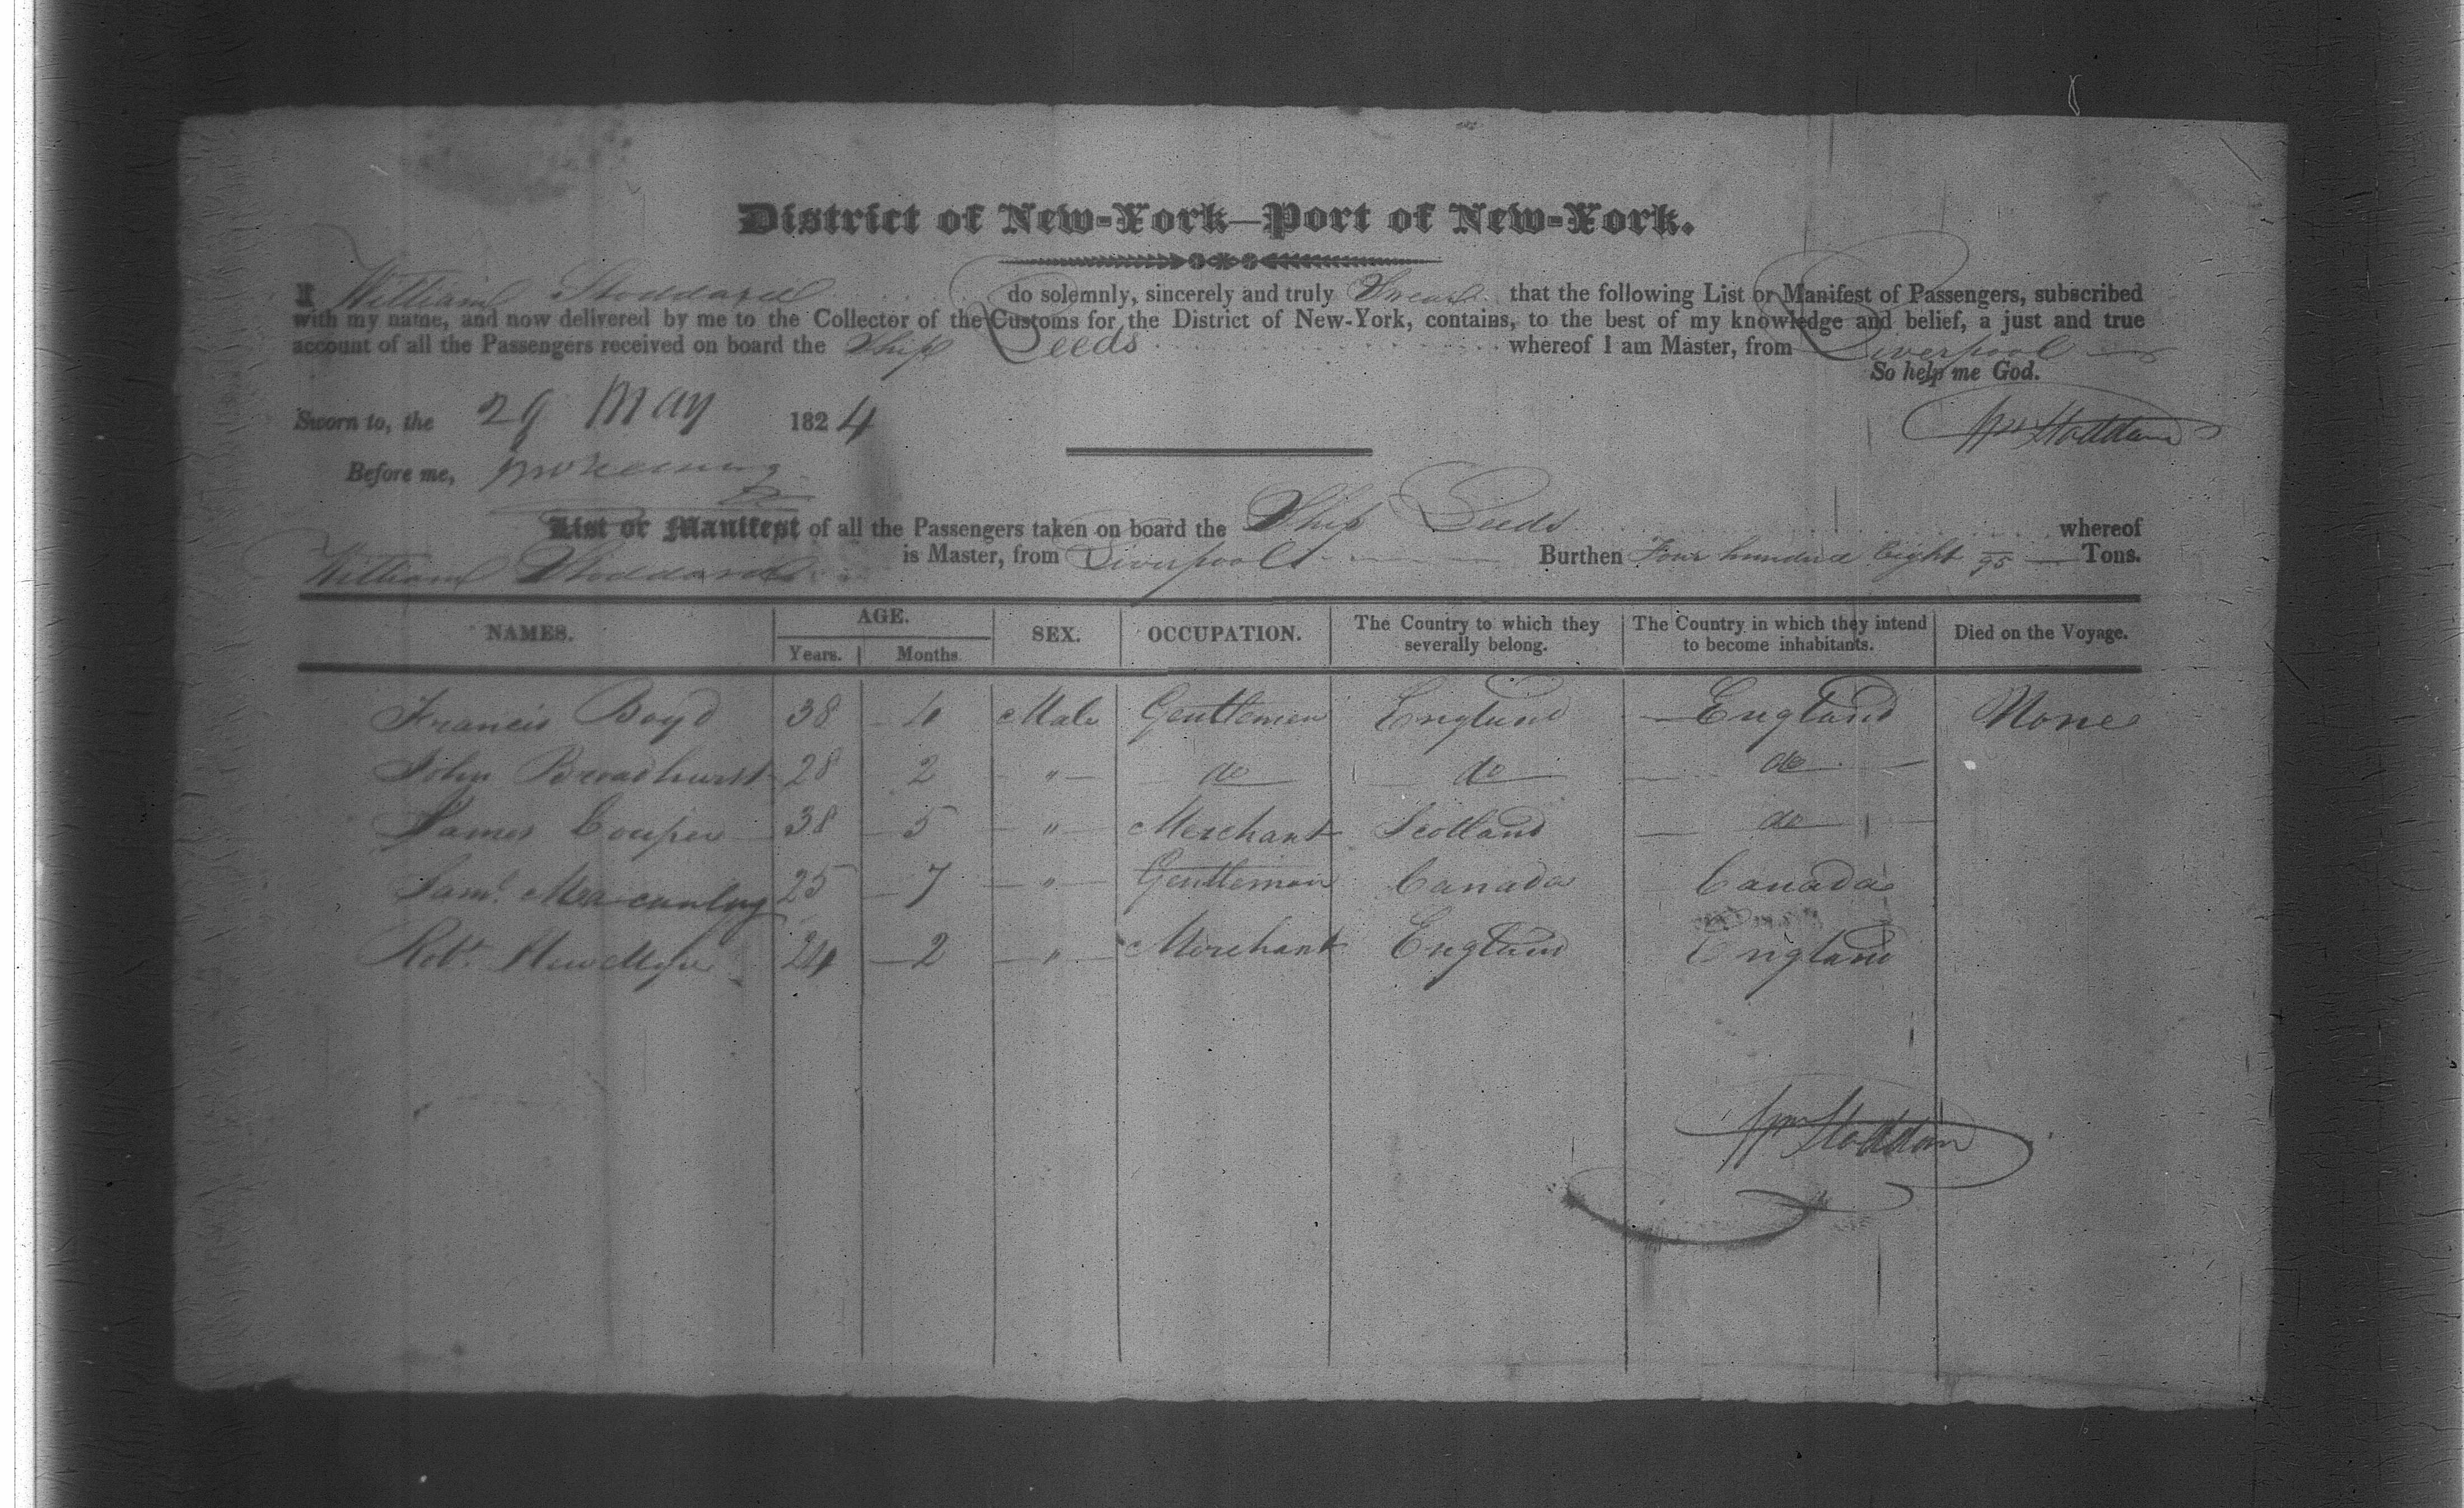 District of New-York—Port of New-York.
I William Stoddard do solemnly, sincerely and truly Swear that the following List or Manifest of Passengers, subscribed
with my name, and now delivered by me to the Collector of the Customs for the District of New-York, contains, to the best of my knowledge and belief, a just and true
account of all the Passengers received on board the Ship Leeds whereof I am Master, from Liverpool
So help me God.
Sworn to, the 29 May 1824
Wm Stoddard
Before me,
List or Manifest of all the Passengers taken on board the Ship Leeds whereof
William Stoddard is Master, from Liverpool Burthen Four hundred Eight 95 Tons.
NAMES. AGE. SEX. OCCUPATION. The Country to which they severally belong. The Country in which they intend to become inhabitants. Died on the Voyage.
Years. Months
Francis Boyd 38 4 Male Gentlemen England England None
John Broadhurst 28 2 " do do do
James Couper 38 5 " Merchant Scotland do
Saml. Macaunley 25 7 " Gentleman Canada Canada
Robt. 24 2 " Merchant England England
Wm Stoddard